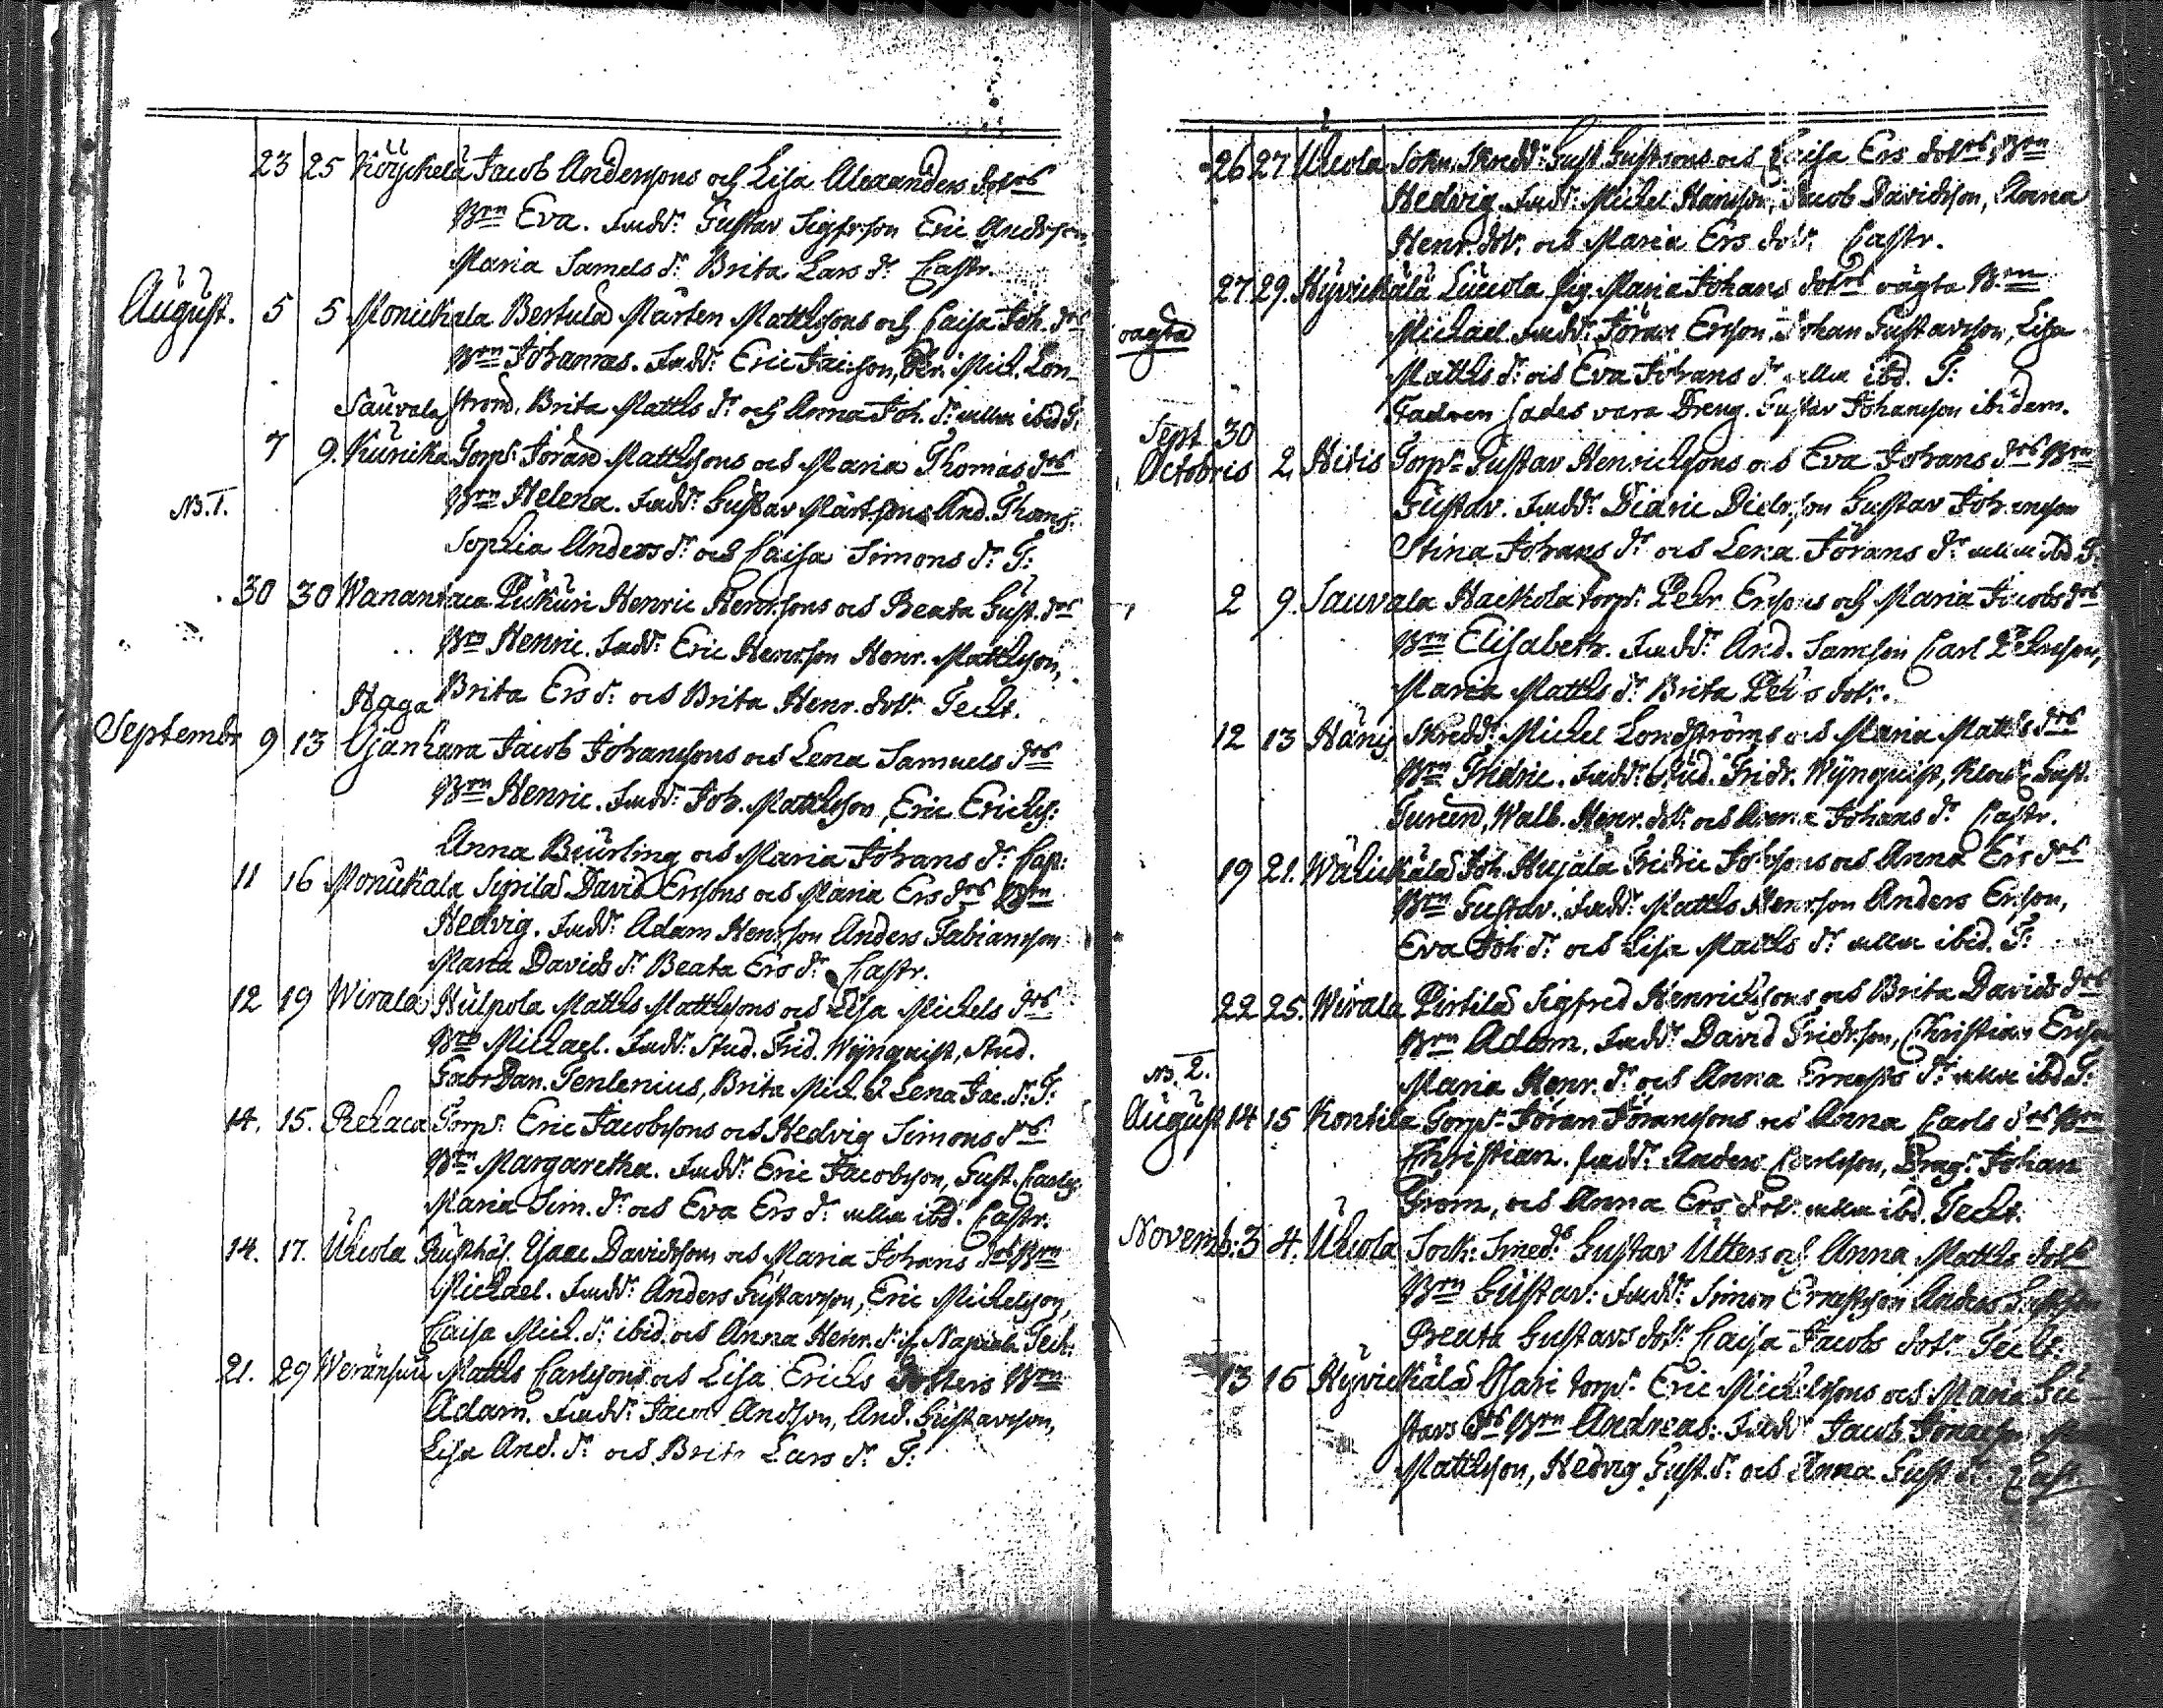 23 25 Köyckelä Jacob Anderssons och Lisa Alexanders dotrs
Brn Eva. Fadd: Gustav Sigfrson Eric Anderson,
Maria Samels dr Brita Lars dr Castr.
August. 5 5 Monickala Bertula Mårten Mattssons och Caisa Joh. drs
Brn Johannes. Fadd: Eric Jacson, Mich. Lon-
Sauvala ström, Brita Matths dr och Anna Joh. dr allm ibid T:
7 9. Kuricka Torp: Jöran Mattssons och Maria Thomas drs
NB. 1. Brn Helena. Fadd: Gustav Mårt.sons And. Thoms:
Sophia Anders dr och Caisa Simons dr T:
30 30 Wanantaca Pukuri Henric Henrsons och Beata Gust. drs
Brn Henric. Fadd: Eric Henrson Henr. Mattsson,
Haga Brita Ers dr och Brita Henr. dotr Techt.
Septembr 9 13 Ojanhara Jacob Johanssons och Lena Samuels drs
Brn Henric. Fadd: Joh. Mattsson, Eric Erichs:
Anna Beurling och Maria Johans dr Cast:
11 16 Monickala Sipilä David Erssons och Maria Ers drs Brn
Hedvig. Fadd: Adam Henrson Anders Fabiansson
Maria Davids dr Beata Ers dr Castr.
12 19 Wirala Hulpola Matths Mattssons och Lisa Michels drs
Brn Michael. Fadd: Stud. Frid. Wÿnquist, Stud.
Gabr Dan. Tenlenius, Brita Mich. & Lena Jac. dr T:
14. 15. Rehaca Torp: Eric Jacobssons och Hedvig Simons drs
Brn Margaretha. Fadd: Eric Jacobsson, Gust. Carls:
Maria Sim. dr och Eva Ers dr allm ibd. Castr.
14. 17. Uhcola Rusthål. Isaac Davidssons och Maria Johans drs Brn
Michael. Fadd: Anders Gustavsson, Eric Michelson,
Caisa Mich. dr ibid. och Anna Henr. dr if. Napiala Tech:
21. 29 Weransuu Matths Carlssons och Lisa Erichs Dotters Brn
Adam. Fadd: Jacob Andson, And. Gustavsson,
Lisa And. dr och Brita Lars dr T:
26 27 Uhcola Sokn. Skredd: Gust Gustssons och Caisa Ers dotrs Brn
Hedvig. Fadd: Michel Hansson, Jacob Davidsson, Anna
Henr. dotr och Maria Ers dotr Castr.
27 29. Hyvickälä Luccola pig. Maria Johans dotrs oägta Brn
oägta Michael. Fadd: Jöran Ersson Johan Gustavsson, Lisa
Matths dr och Eva Johans dr allm ibd. T:
Fadren sades vara Dreng. Gustav Johansson ibidem.
Sept 30
Octobris 2. Hidis Torp: Gustav Henrichssons och Eva Johans drs Brn
Gustav. Fadd: Didric Didrson Gustav Johansson
Stina Johans dr och Lena Jörans dr allm ibd T:
2 9. Sauvala Haickola torp: Pehr Ersons och Maria Jacobs drs
Brn Elisabeth. Fadd: And. Samson Carl Pehrsson,
Maria Matths dr Brita Pehrs dotr.
12 13 Skredd: Michel Londströms och Maria Matths drs
Brn Fridric. Fadd: Stud. Fridr. Wÿnquist, Klock: Gust.
Walb. Henr. dotr och Anna Johans dr Castr.
19 21. Wähickälä Joh. Hujala Fridric Johssons och Anna Ers drs
Brn Gustav. Fadd: Matths Henrson Anders Erson,
Eva Joh dr och Lisa Matths dr allm ibid. T:
22 25. Wirala Pirtilä Sigfred Henrichssons och Brita Davids drs
Brn Adam. Fadd: David Fridrson, Christian Erson
NB. 2. Maria Henr. dr och Anna Ernests dr allm ibd T:
August 14 15 Kontila Torp: Jöran Jöranssons och Anna Carls drs Brn
Christian. Fadd: Anders Carlsson, Drag: Johan
Grom, och Anna Ers dotr allm ibd. Techt.
Novemb: 3 4. Uhcola Sock: Smed: Gustav Utters och Anna Matths dotrs
Brn Gustav: Fadd: Simon Ernestsson Anders Gustson
Preuta Gustavs dotr Caisa Jacobs dotr Techt.
13 16 Hyvickälä Ojari torp: Eric Michelssons och Maria Gu-
stavs drs Brn Andreas: Fadd: Jacob
Mattsson, Hedvig Gust. dr och Anna Gust dr Cast.